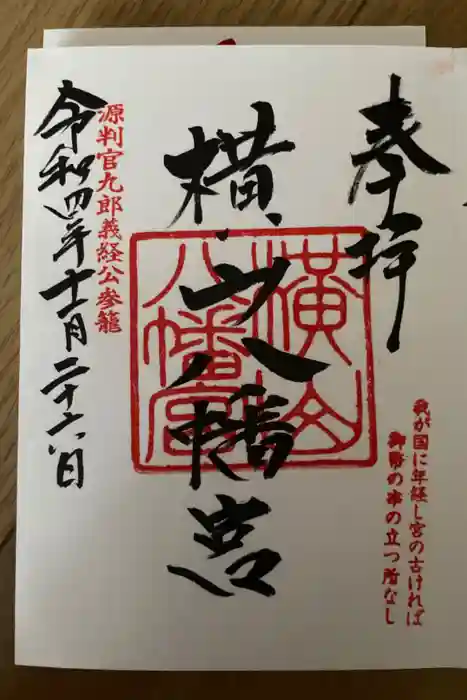 奉拝
我が国に年経し宮の古ければ
御幣の串の立つ所なし
横山八幡宮
横山
八幡宮
源判官九郎義経公参籠
令和四年十一月二十六日